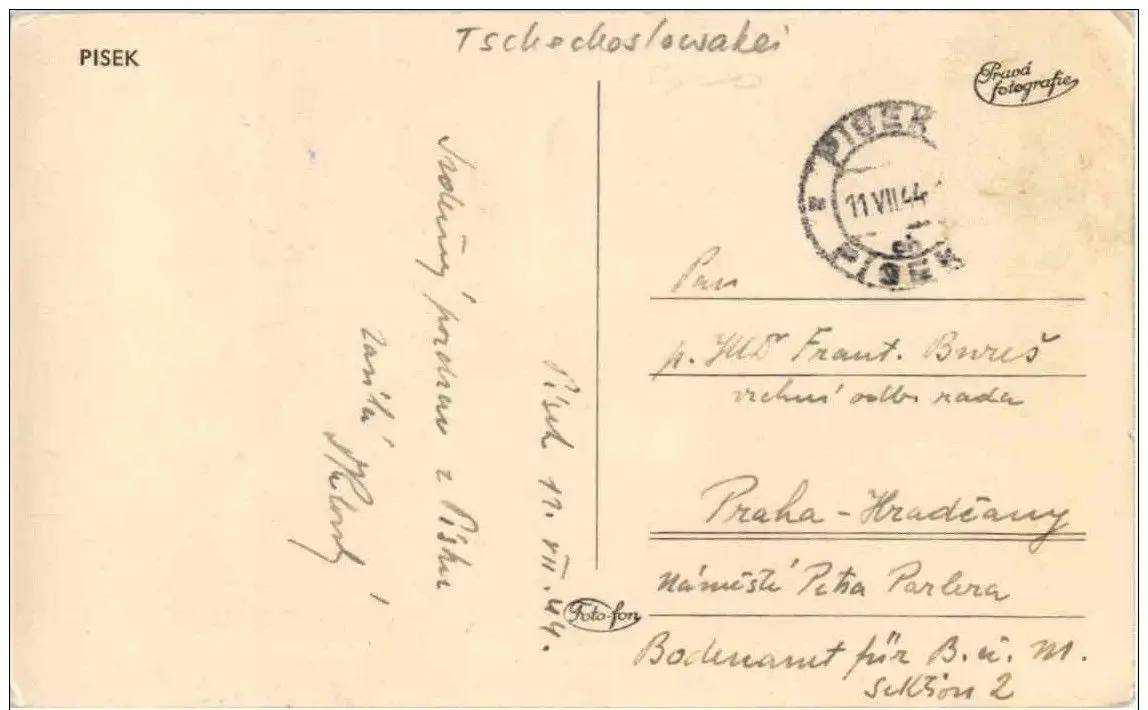 Tschechoslowakei
PISEK
Pravá
fotografie
PISEK
11 VII 44
PISEK
Srdečný pozdrav z Písku
zasílá
Písek 11. VII. 44.
Pan
p. JUD Frant. Bureš
vrchní odb. rada
Praha - Hradčany
Náměstí Petra Parlera
Bodenamt für B. u. M.
Sektion 2
Foto-fon